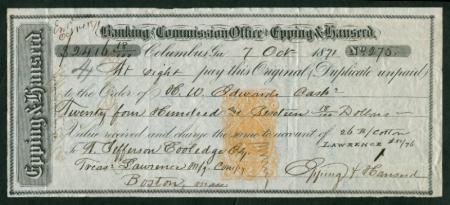 Banking & Commission Office of Epping & Hanserd.
$2416 18/100 Columbus, Ga 7 Oct 1871 No 4275.
At sight pay this Original (Duplicate unpaid)
to the Order of W. W. Edwards Cash
Twenty four Hundred and Sixteen 18/100 Dollars
Value received and charge the same to account of 26 B/ Cotton
To T. Jefferson Coolidge Esq. LAWRENCE
Treas Lawrence M'f'g Comp'y
Boston, Mass Epping & Hanserd
Epping & Hanserd.